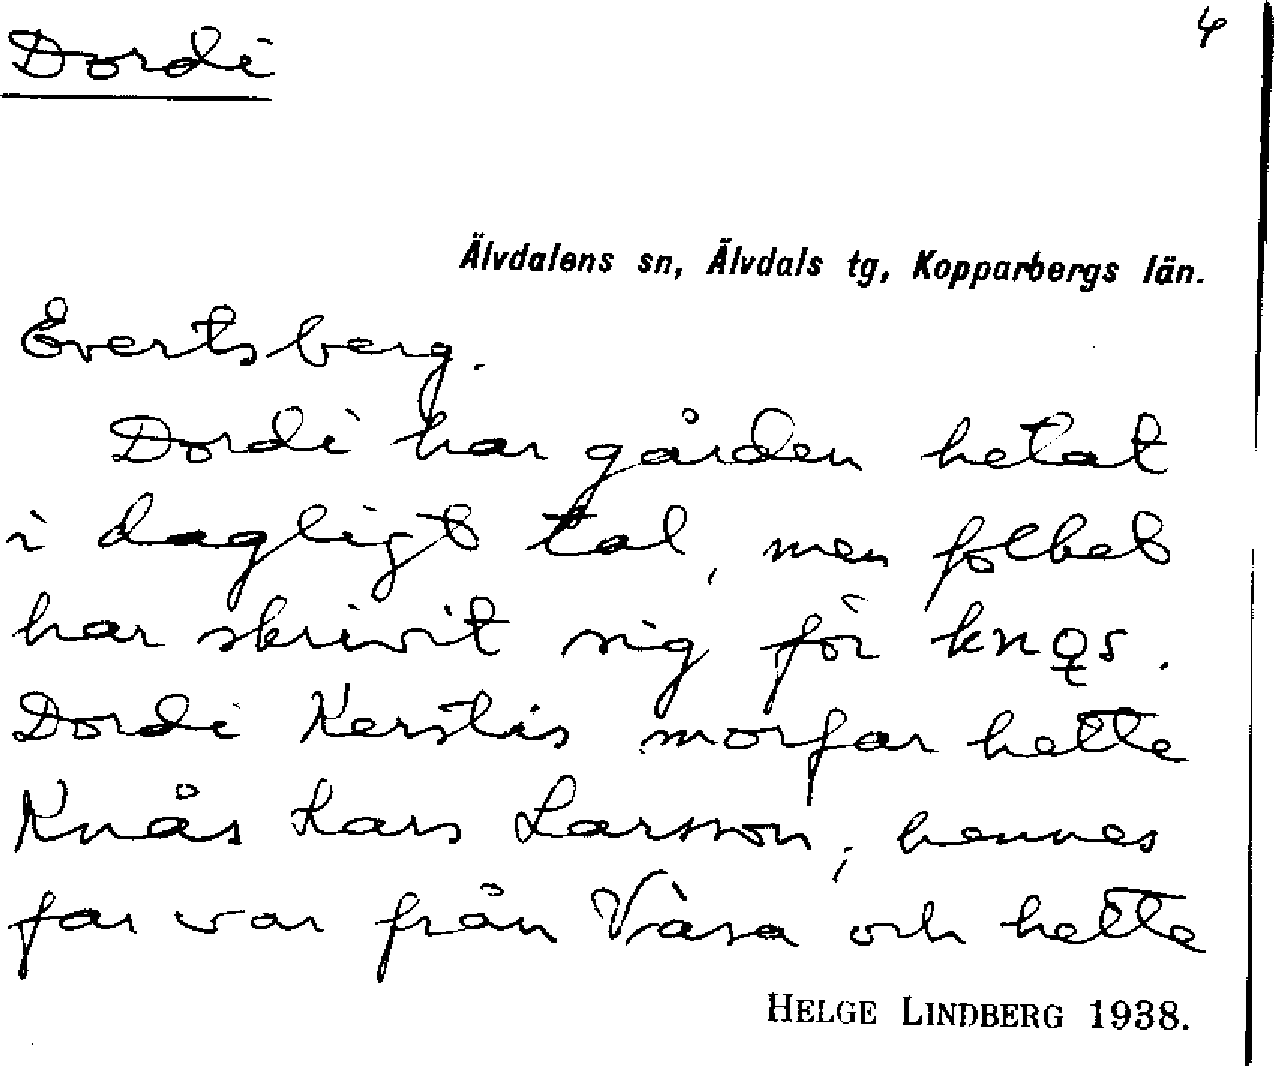 Dordi 4
Älvdalens sn, Älvdals tg, Kopparbergs län.
Evertsberg.
Dordi har gården hetat
i dagligt tal, men folket
har skrivit sig för knǫs.
Dordi Kerstis morfar hette
Knås Lars Larsson; hennes
far var från Våsa och hette
HELGE LINDBERG 1938.